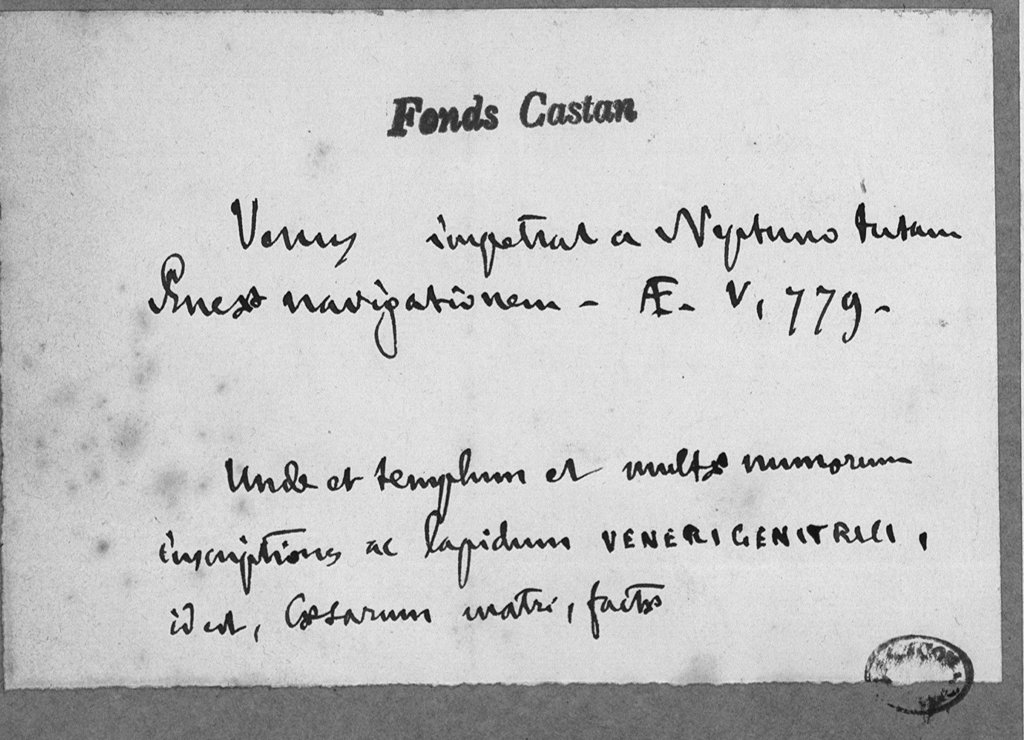 Fonds Castan
Venus impetrat a Neptuno tutam
Æneæ navigationem - Æ. V, 779.
Unde et templum et multæ numorum
inscriptiones ac lapidum VENERI GENITRICI,
id est, Cæsarum matri, factæ